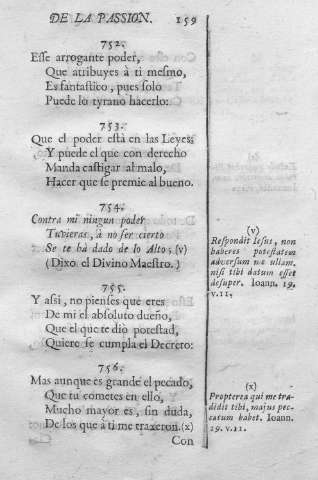 DE LA PASSION. 159
752.
Esse arrogante poder,
Que atribuyes à ti mesmo,
Es fantastico, pues solo
Puede lo tyrano hacerlo:
753.
Que el poder està en las Leyes;
Y puede el que con derecho
Manda castigar al malo,
Hacer que se premie al bueno.
754.
Contra mì ningun poder
Tuvieras, à no ser cierto
Se te hà dado de lo Alto; (v)
(Dixo el Divino Maestro.)
755.
Y assi, no pienses que eres
De mi el absoluto dueño,
Que el que te diò potestad,
Quiere se cumpla el Decreto:
756.
Mas aunque es grande el pecado,
Que tu cometes en ello,
Mucho mayor es, sin duda,
De los que à ti me traxeron. (x)
Con
(v)
Respondit Iesus, non
haberes potestatem
adversum me ullam,
nisi tibi datum esset
desuper. Ioann. 19.
v.11.
(x)
Propterea qui me tra-
didit tibi, majus pec-
catum habet. Ioann.
19. v.11.